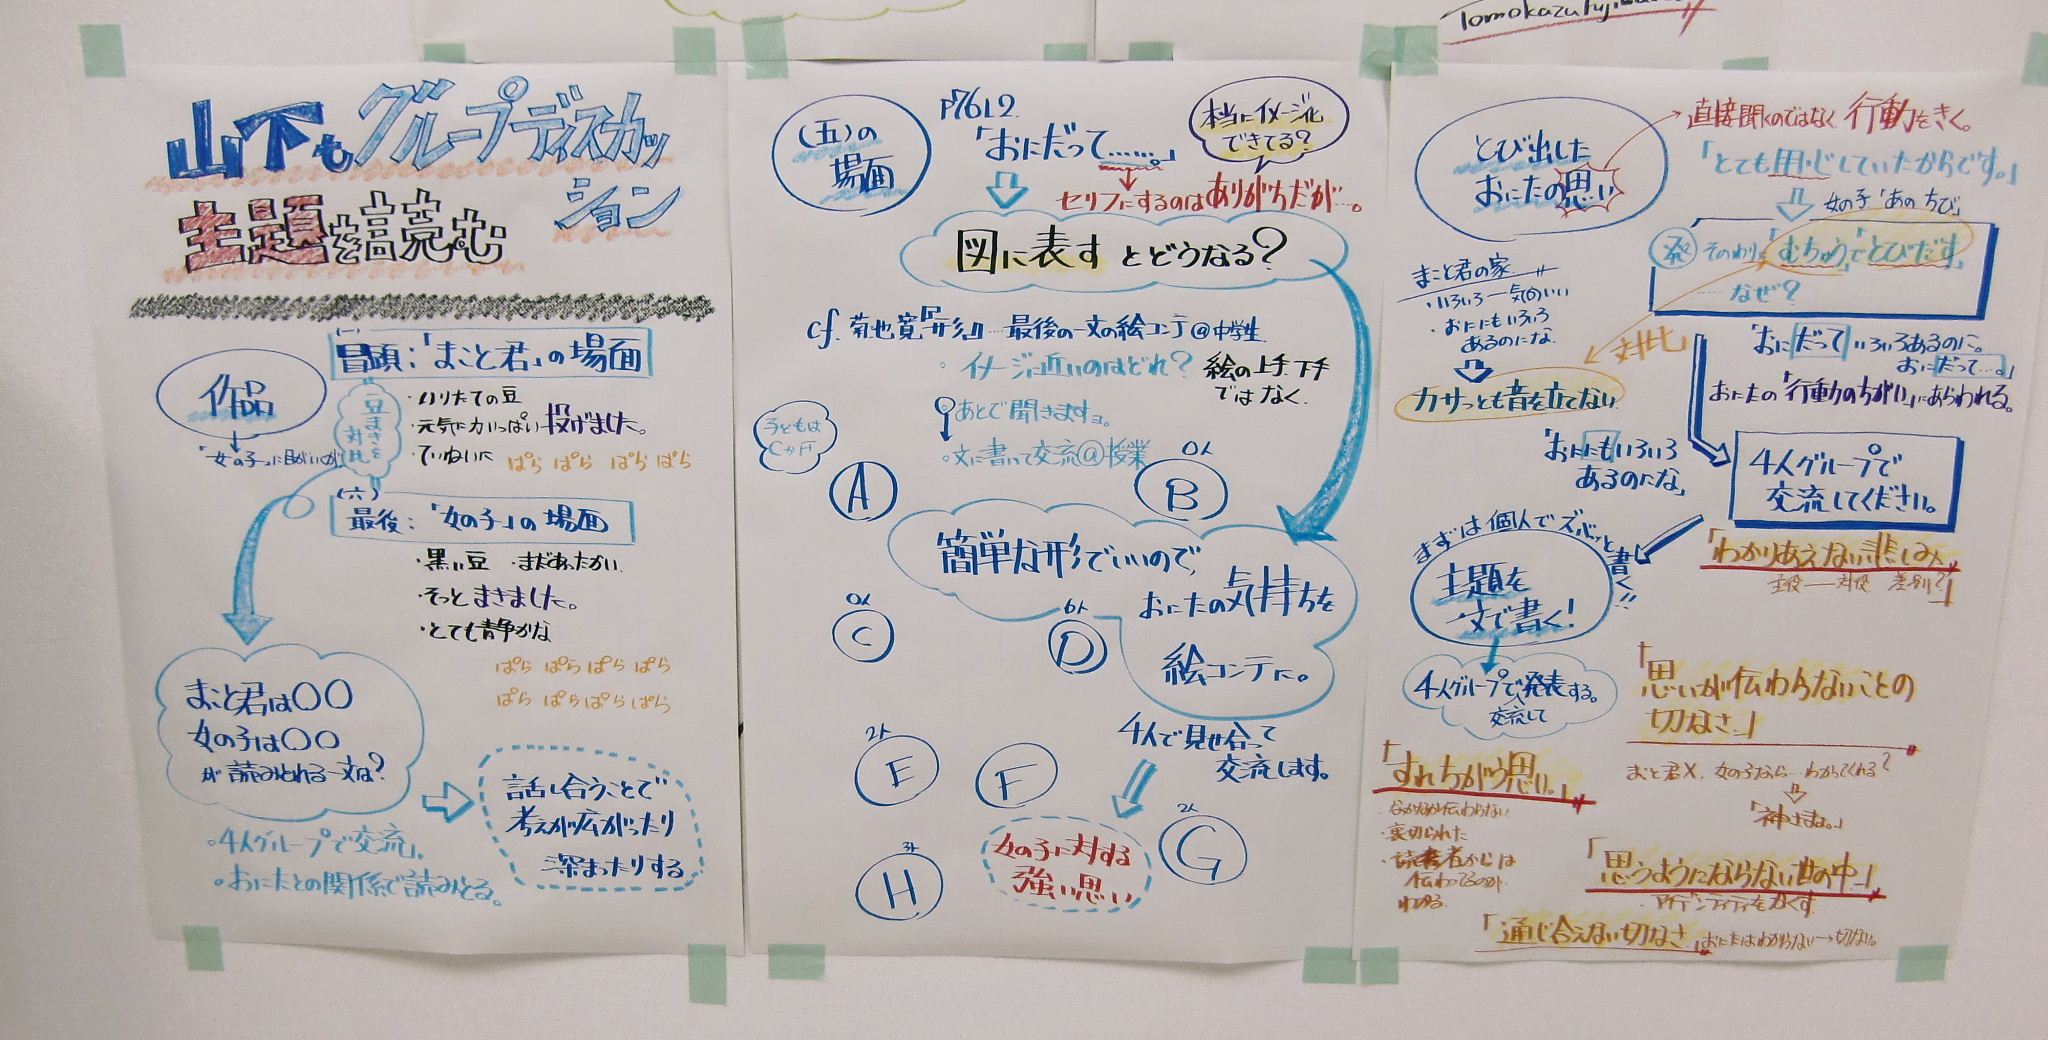 山下もグループディスカッ
ション
主題を読む
作品
「女の子」に目がいくが
(一)
冒頭:「まこと君」の場面
・いりたての豆
・元気に力いっぱい投げました。
・ていねいに
ぱら ぱら ぱら ぱら
豆まきを
対比
(六)
最後:「女の子」の場面
・黒い豆 ・まだあったかい
・そっと まきました。
・とても静かな
ぱら ぱら ぱら ぱら
ぱら ぱら ぱら ぱら
まこと君は〇〇
女の子は〇〇
が読みとれる一文は?
・4人グループで交流。
・おにたとの関係で読みとる。
話し合うことで
考えが広がったり
深まったりする
(五)の
場面
P76L2
「おにだって……。」
本当にイメージ化
できてる?
セリフにするのはありがちだが…。
図に表すとどうなる?
cf. 菊池寛『形』…最後の一文の絵コンテ@中学生
・イメージに近いのはどれ? 絵の上手下手
ではなく。
あとで聞きますョ。
・文に書いて交流@授業
子どもは
CかF
A
0人
B
簡単な形でいいので、
おにたの気持ちを
絵コンテに。
0人
C
6人
D
4人で見せ合って
交流します。
2人
E
F
2人
G
3人
H
女の子に対する
強い思い
とび出した
おにたの思い
直接聞くのではなく 行動をきく。
「とても用心していたからです。」
女の子「あのちび」
発 そのわりに「むちゅう」で「とびだす」
……なぜ?
まこと君の家
・いろいろ一気(分)いい
・おににもいろいろ
あるのにな
カサっとも音を立てない
対比
「おにだっていろいろあるのに。
おにだって…。」
おにたの「行動のちがい」にあらわれる。
「おににもいろいろ
あるのにな」
4人グループで
交流してください。
まずは個人でズバッと書く!!
主題を
一文で書く!
4人グループで発表する。
交流して
「わかりあえない悲しみ
主役――対役 差別?」
「思いが伝わらないことの
切なさ。」
まこと君X、女の子なら…わかってくれる?
「神さま。」
「すれちがう思い。」
なかなか伝わらない
・裏切られた
・読者からは
伝わってるのが
わかる
「思うようにならない世の中。」
・アイデンティティをかくす
「通じ合えない切なさ」おにたはわからない→切ない。